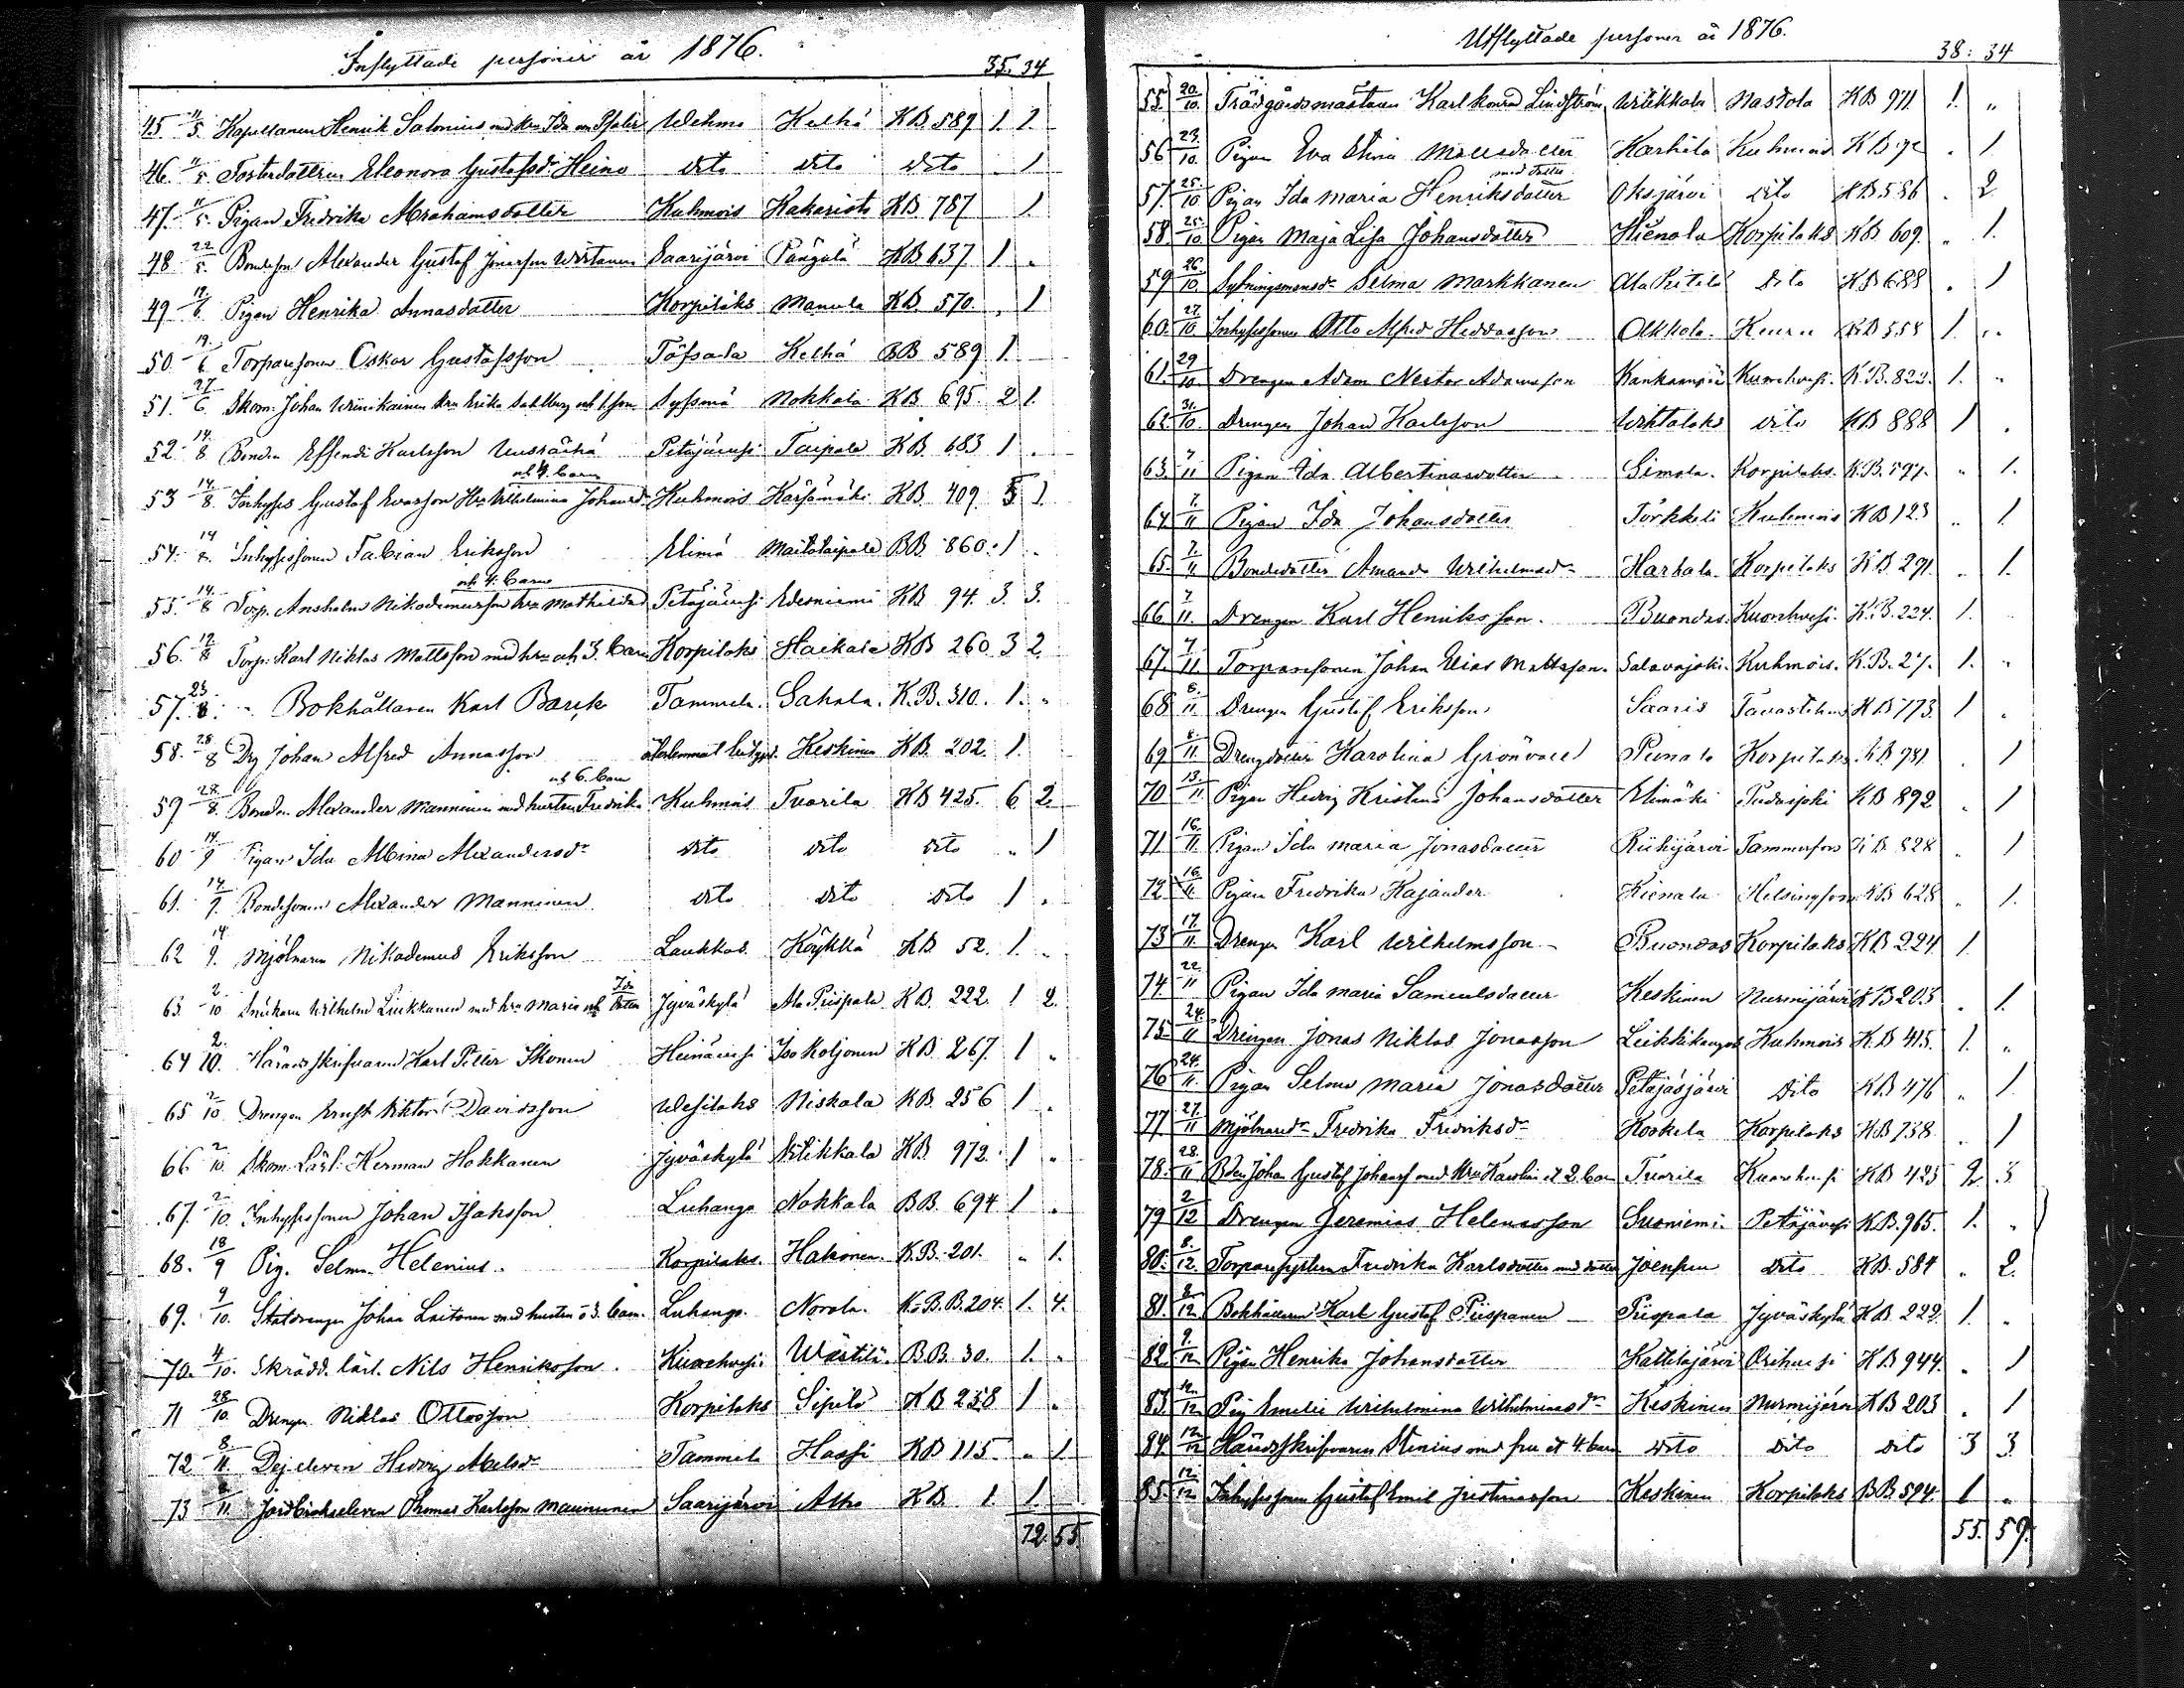 Inflyttade personer år 1876.
35. 34
45 11/5. Kapellanen Henrik Salonius med hru Ida Wehmo Kelhä KB 589 1. 1.
46. 11/5. Fosterdottern Eleonora Gustafsdr Heino dito dito dito . 1
47. 11/5. Pigan Fredrika Abrahamsdotter Kuhmois Kakaristo KB 787 1.
48 22/5. Bondeson Alexander Gustaf Wirtanen Saarijärvi Pängälä KB 637 1 „
49 12/6 Pigan Henrika Annasdotter Korpilaks Manula KB. 570. „ 1
50 19/6 Torparesonen Oskar Gustafsson Töfsala Kelhä BB 589 1.
51. 27/6 Skom. Johan hru Erika Sahlberg och 1 son Syssmä Nokkala KB 695. 2 1.
52. 14/8 Bonden Effendi Karlsson Petäjävesi Taipale KB. 683 1 .
och 4 barn
53 14/8. Inhyses Gustaf Evasson Hru Wilhelmina Johansdr Kuhmois Karjomäki KB. 409. 5 1.
54. 14/8. Inhysessonen Fabian Eriksson Elimä Maitotaipale BB. 860. 1 .
och 4. barn
55. 14/8 Torp. Ansholm Nikodemusson hru Mathilda Petäjävesi Edesniemi KB 94. 3. 3.
56. 19/8 Torp. Karl Niklas Mattsson med hru och 3. barn Korpilaks Haikala KB 260 3 2.
57. 23/8. „ Bokhållaren Karl Barck Tammela. Sahala. K.B. 310. 1. „
58. 28/8 Drg Johan Alfred Annasson Keskinen KB. 202. 1.
och 6. barn
59 28/8. Bonden Alexander Manninen med hustru Fredrika Kuhmois Tuorila KB 425. 6 2.
60 14/9 Pigan Ida Albina Alexandersdr dito dito dito „ 1
61. 14/9. Bondesonen Alexander Manninen dito dito dito 1 .
62 14/9. Mjölnaren Nikodemus Eriksson Laukkas. Köykkä KB 52. 1. „
Ida
63. 2/10 Snickaren Wilhelm Liukkanen med hru Maria och dotter Jyväskylä Ala Piispala KB. 222. 1 2.
64 2./10. Häradsskrifvaren Karl Petter Ikonen Heinävesi Iso Koljonen KB. 267. 1 „
65 2/10 Drengen Ernst Viktor Davidsson Wesilaks Niskala KB. 256 1 .
66 2/10 Skom. Lärl. Herman Hokkanen Jyväskylä Wilikkala KB. 972. 1 „
67. 2/10. Inhysessonen Johan Isaksson Luhango Nokkala BB. 694 1 .
68. 18/9 Pig. Selma Helenius. Korpilaks. Hakonen. K.B. 201. „ 1.
69. 9/10. Statdrengen Johan Laitonen med hustru o 3. barn. Luhango. Norola. K.B.B. 204. 1. 4.
70. 4/10. Skrädd. lärl. Nils Henriksson. Kuorehvesi. Wästilä. B.B. 30. 1. „
71 28/10. Drengen Niklas Ottosson Korpilaks Sipilä KB 258 1 „
72 8/11. Dejeleven Hedvig Abelsdr Tammela Hassi KB 115. „ 1
73 8/11. Jordbrukseleven Thomas Karlsson Manninen Saarijärvi Alho KB. 1. 1.
72. 55.
Utflyttade personer år 1876.
38: 34
55. 20./10. Trädgårdsmästaren Karl Konrad Lindström Wilikkala Nastola KB 971 1. „
56 23./10. Pigan Eva Stina Mattsdotter Karhila Kuhmois KB 72 . 1
med dotter
57. 25./10 Pigan Ida Maria Henriksdotter Oksjärvi dito KB. 586 . 2
58 25./10. Pigan Maja Lisa Johansdotter Hienola Korpilaks KB 609. „ 1.
59 26./10. Sytningsmansdr Selma Markkanen Ala Pitilä dito KB 688 . 1
60. 27./10 Inhysessonen Otto Alfred Heddasson Olkkola. Keuru KB 558 1. „
61. 29/10 Drengen Adam Nestor Adamsson Kankaanpää Kuorehvesi. K.B. 823. 1. „
62 31./10. Drengen Johan Karlsson dito KB 888 1 .
63. 7/11 Pigan Ida Albertinasdotter Simola. Korpilaks. K.B. 597. „ 1.
64 7./11 Pigan Ida Johansdotter Torkkeli Kuhmois KB 123 „ 1.
65. 7./11 Bondedotter Amanda Wilhelmsdr Harkala. Korpilaks KB 291 . 1.
66 7/11. Drengen Karl Henriksson. Buondas. Kuorehvesi. K.B. 224. 1.
67. 7./11. Torparesonen Johan Elias Mattsson. Salavajoki. Kuhmois. K.B. 27. 1. „
68 8./11. Drengen Gustaf Eriksson Saaris Tavastehus KB 773. 1 .
69 8./11. Drengdotter Karolina Grönvall Korpilaks KB 981 . 1
70 13./11. Pigan Hedvig Kristina Johansdotter Elimäki KB 892. . 1
71 16./11. Pigan Ida Maria Jonasdotter Riihijärvi Tammerfors KB. 828 „ 1
72 16./11. Pigan Fredrika Kajander Kienala Helsingfors KB 628 „ 1.
73 17./11. Drengen Karl Wilhelmsson Buondas Korpilaks KB 224. 1
74 22./11 Pigan Ida Maria Samuelsdotter Keskinen Nurmijärvi KB 203 . 1.
75 24./11 Drengen Jonas Niklas Jonasson Leikkikangas Kuhmois K.B. 415. 1. „
76 24./11. Pigan Selma Maria Jonasdotter Petäjäsjärvi dito KB 476 „ 1.
77 27./11 Mjölnaredr Fredrika Fredriksdr Koskela Korpilaks KB 738. . 1
78. 28./11 Johan Gustaf Johansson med hru Karolin et 2. barn Tuorila Kuorehvesi KB 425 2 3
79 2/12 Drengen Jeremias Helenasson Suoniemi Petäjävesi KB. 965. 1. „
80. 8./12. Torparesystern Fredrika Karlsdotter med dotter Joensuu dito KB. 584 „ 2.
81. 8/12. Bokhållaren Karl Gustaf Piispanen Piispala Jyväskylä KB. 222. 1. „
82 9./12. Pigan Henrika Johansdotter Kallilajärvi Orihvesi KB 944. . 1
83. 12./12. Pig Emelie Wilhelmina Wilhelminasdr Keskinen Nurmijärvi KB 203 . 1
84. 12./12 Häradsskrifvaren Stenius med fru et 4. barn dito dito dito 3 3.
85. 12./12 Inhysessonen Gustaf Emil Justinasson Keskinen Korpilaks BB 594. 1 „
55. 59.